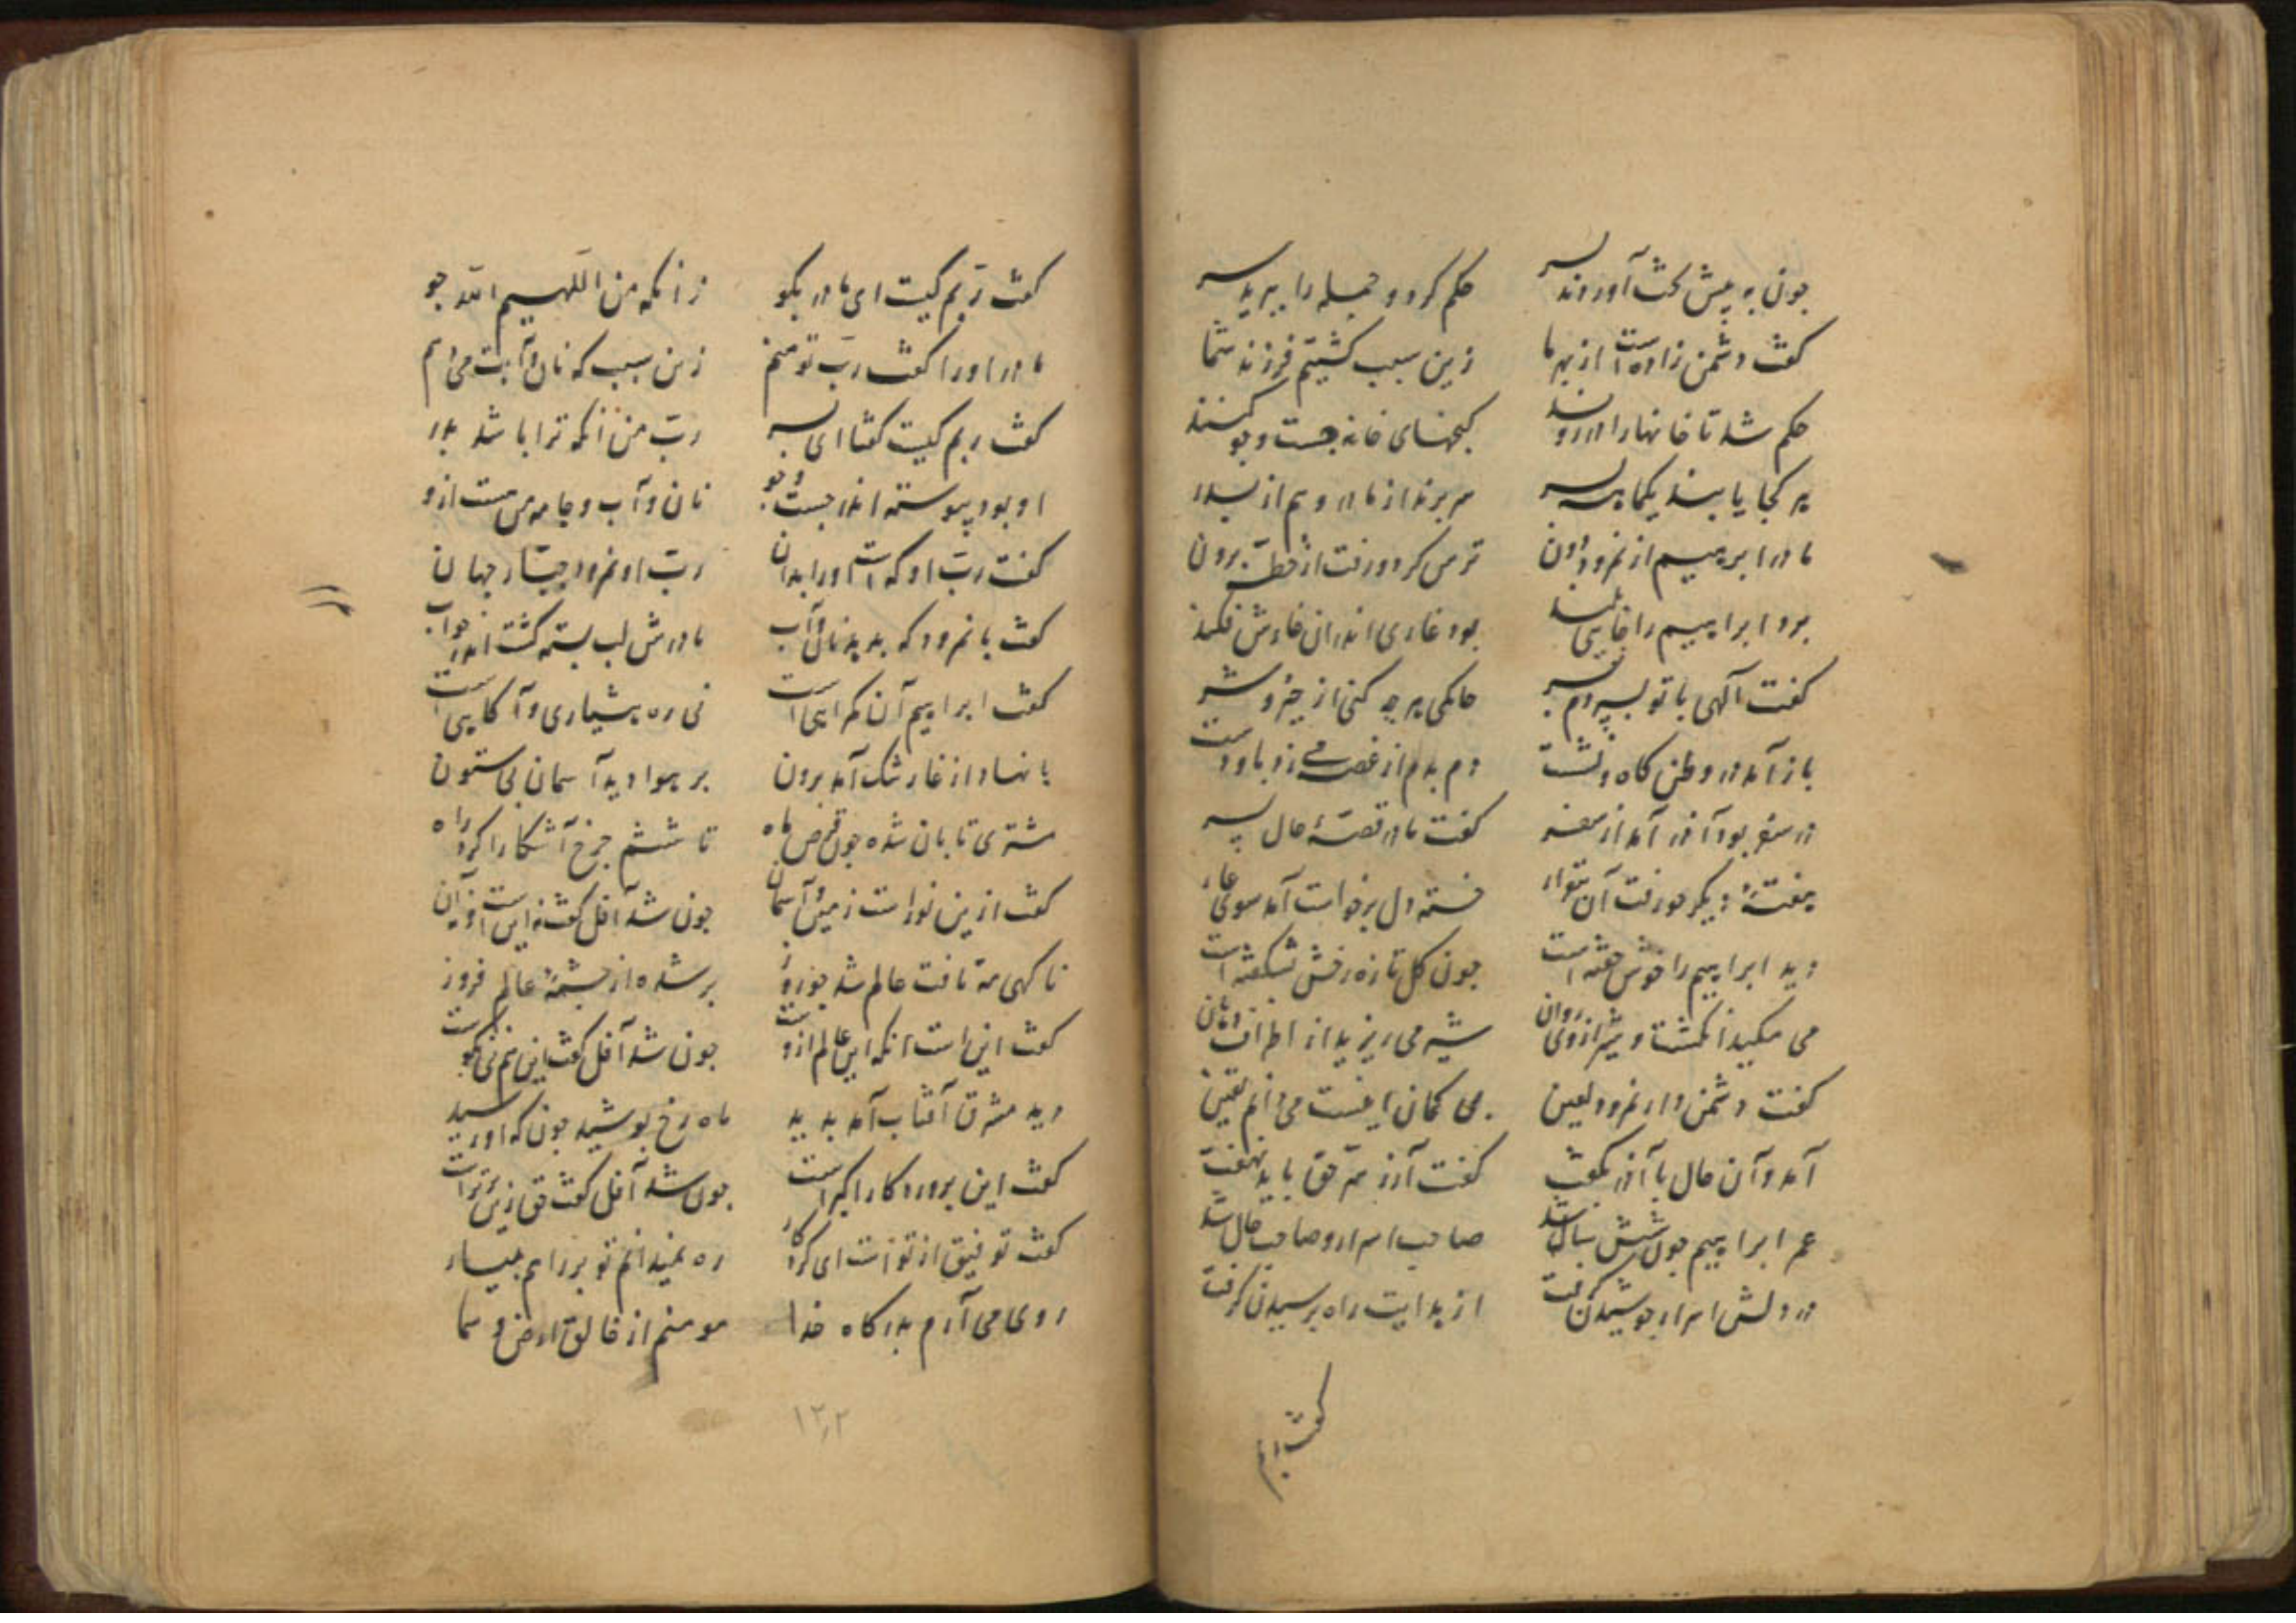 چون به پیش تخت آوردند سر حکم کرد و جمله را ببرید سر
کفت دشمن زاده است از بهر ما زین سبب کشتیم فرزند شما
حکم شد تا خانها را در روند کنجهای خانه جست و جو کنند
هر کجا یابند یکماهه پسر سر برند از مادر و هم از پدر
مادر ابرهیم از نمرود دون ترس کرد و رفت از خطه برون
برد ابراهیم را جایی بلند بود غاری اندران غارش فکند
کفت الهی با تو بسپردم پسر حاکمی هر چه کنی از خیر و شر
باز آمد در وطن کاه و نشست دم بدم از غصه می زد باد دست
در سفر بود آذر آمد از سفر کفت مادر قصهٔ حال پسر
هفتهٔ دیکر چو رفت آن سوار خسته دل برخواست آمد سوی غار
دید ابراهیم را خوش خفته است چون کل تازه رخش بشکفته است
می مکید انکشت و شیر از وی روان شیر می ریزید از اطراف دهان
کفت دشمن دار نمرود لعین بی کمان اینست می دانم یقین
آمد و آن حال با آذر بکفت کفت آزر سر حق باید نهفت
عمر ابراهیم چون شش سال شد صاحب اسرار و صاحب حال شد
در دلش اسرار جوشیدن کرفت از هدایت راه پرسیدن کرفت
کفت ربم
کفت ربم کیست ای مادر بکو زانکه من اللهیم الله جو
مادر او را کفت رب تو منم زین سبب که نان و آبت می دهم
کفت ربم کیست کفتا ای پسر رب من زانکه ترا باشد پدر
او بود پیوسته اندر جست و جو نان و آب و جامه من هست ازو
کفت رب او که است او را بدان رب او نمرود جبار جهان
کفت با نمرود که بدهد نان و آب مادرش لب بسته کشت اندر جواب
کفت ابراهیم آن کمراهی است نی ره هشیاری و آکاهی است
پا نهاد از غار شک آمد برون بر هوا دید آسمان بی ستون
مشتری تابان شده چون قرص ماه تا ششم چرخ آشکارا کرد راه
کفت ازین نور است زمین و آسمان چون شد آفل کفت نه این است
ناکهی مه تافت عالم شد چو روز بر شده از چشمهٔ عالم فروز
کفت این است انکه این عالم ازوست چون شد آفل کفت این هم نی نکوست
دید مشرق آفتاب آمد پدید ماه رخ پوشید چون که او رسید
کفت این پروردکار اکبر است چون شد آفل کفت حق زین برتر است
کفت توفیق از تو است ای کردکار ره نمیدانم تو بر راهم بیار
روی می آرم بدرکاه خدا مومنم از خالق ارض و سما
۱۲۲